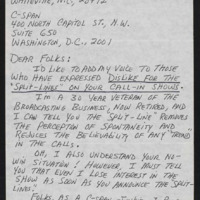 WHITEVILLE, N.C. 28472
C-SPAN
400 NORTH CAPITOL ST., N.W.
SUITE 650
WASHINGTON, D.C. 2001
DEAR FOLKS:
I'D LIKE TO ADD MY VOICE TO THOSE
WHO HAVE EXPRESSED DISLIKE FOR THE
"SPLIT-LINES" ON YOUR CALL-IN SHOWS.
I'M A 30 YEAR VETERAN OF THE
BROADCASTING BUSINESS, NOW RETIRED, AND
I CAN TELL YOU THE "SPLIT-LINE" REMOVES
THE PERCEPTION OF SPONTANEITY AND
REDUCES THE BELIEVABILITY OF ANY "TREND"
IN THE CALLS.
OH, I ALSO UNDERSTAND YOUR NO-
WIN SITUATION! HOWEVER, I MUST TELL
YOU THAT EVEN I LOSE INTEREST IN THE
SHOW AS SOON AS YOU ANNOUNCE THE SPLIT-
LINES.
FOLKS, AS A C-SPAN